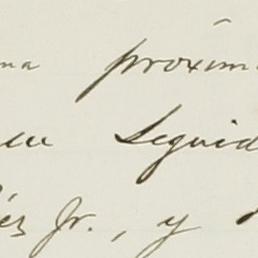 na próxim
en Seguid
ez Jr., y